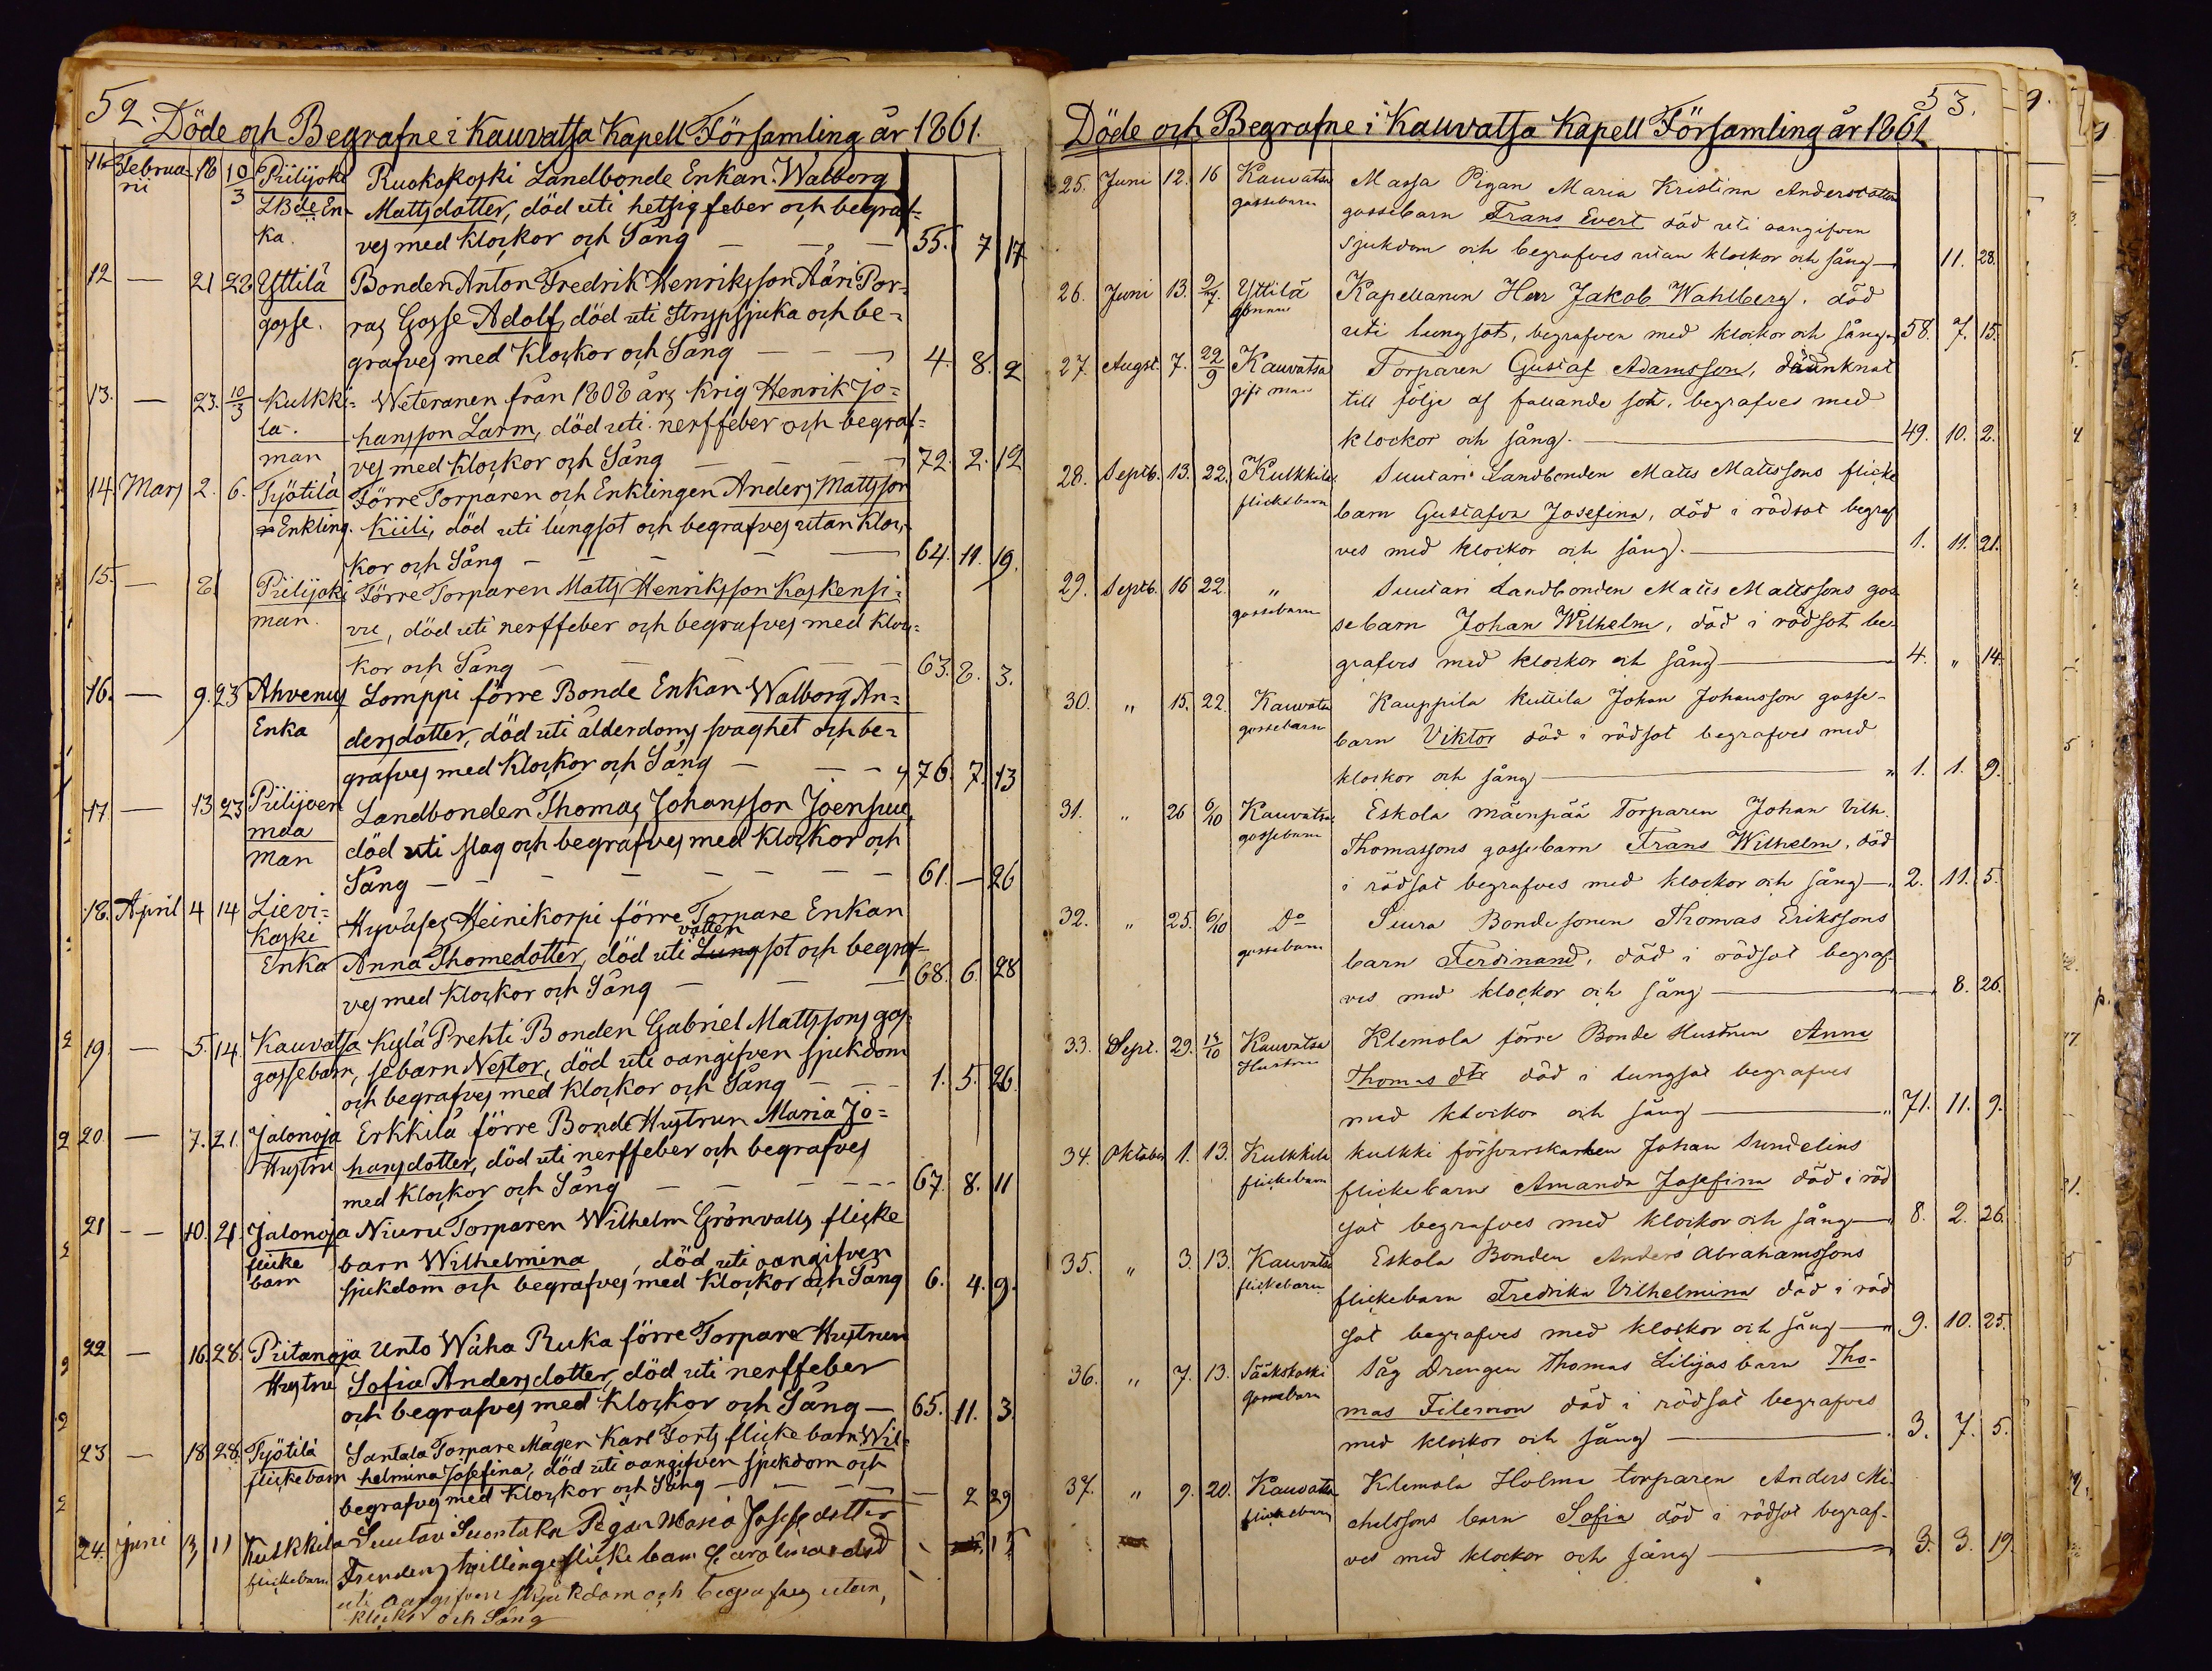 52. Döde och Begrafne i Kauvatsa Kapell Församling år 1861.
11. Februa- 18 10/3 Piilijoki Ruokokoski Landbonde Enkan Walborg
ri LBde En- Mattsdotter, död uti hetsig feber och begraf-
ka. ves med Klockor och Sång — — — 55. 7 17
12 — 21 28 Yttilä Bonden Anton Fredrik Henriksson Ääri Por-
gosse. ras Gosse Adolf, död uti Strypsjuka och be-
grafves med Klockor och Sång — — — 4. 8. 2
13. — 23. 10/3 Kulkki- Weteranen från 1808 års krig Henrik Jo-
la. hansson Larm, död uti nerffeber och begraf-
man ves med Klockor och Sång — — — 72. 2. 12
14. Mars 2. 6. Työtilä Förre Torparen och Enklingen Anders Mattsson
Enkling. Kiili, död uti lungsot och begrafves utan Kloc-
kor och Sång — — — 64. 11. 19.
15. — 2. Piilijoki Förre Torparen Matts Henriksson Koskensi-
man. vu, död uti nerffeber och begrafves med Kloc-
kor och Sång — — — 63. 2. 3.
16. — 9. 23 Ahvenus Lomppi förre Bonde Enkan Walborg An-
Enka dersdotter, död uti ålderdoms svaghet och be-
grafves med Klockor och Sång — — — 76. 7. 13
17 — 13 23 Piilijoen Landbonden Thomas Johansson Joensuu,
maa död uti slag och begrafves med Klockor och
man Sång — — — — — 61. — 26
18. April 4 14 Lievi- Hyväses Heinikorpi förre Torpare Enkan
koski vatten
Enka Anna Thomedotter, död uti Lungsot och begraf-
ves med Klockor och Sång — — — 68. 6. 28
19 — 5. 14. Kauvatsa Kylä Prehti Bonden Gabriel Mattssons gos-
gossebarn, sebarn Nestor, död uti oangifven sjukdom
och begrafves med Klockor och Sång — — — 1. 5. 26.
20. — 7. 21. Jalonoja Erkkilä förre Bonde Hustrun Maria Jo-
Hustru hansdotter, död uti nerffeber och begrafves
med Klockor och Sång — — — 67. 8. 11
21 — 10. 21. Jalonoja Niuru Torparen Wilhelm Grönvalls flicke
flicke barn Wilhelmina, död uti oangifven
barn sjukdom och begrafves med Klockor och Sång 6. 4. 9.
22 — 16. 28. Piitanoja Unto Wäha Ruka förre Torpare Hustrun
Hustru Sofia Andersdotter, död uti nerffeber
och begrafves med Klockor och Sång — 65. 11. 3.
23 — 18 28. Työtilä Santala Torpare Mågen Karl Forts flicke barn Wil-
flickebarn helmina Josefina, död uti oangifven sjukdom och
begrafves med Klockor och Sång — — — 2 29
24. juni 3 11 Kulkkila Suutari Suontaka Pigan Maria Josefsdotter
flickebarn tvillinge flicke barn Carolina död 15
uti oangifven sjukdom och begrafves utan
klockor och Sång
53.
Döde och Begrafne i Kauvatsa Kapell Församling år 1861
25. Juni 12. 16 Kauvatsa Massa Pigan Maria Kristina Andersdotters
gossebarn gossebarn Frans Evert död uti oangifven
sjukdom och begrafves utan klockor och sång — 11. 28.
26. Juni 13. 2/7. Yttilä Kapellanen Herr Jakob Wahlberg, död
uti lungsot, begrafven med klockor och sång 58. 7. 15.
27. Augst. 7. 22/9 Kauvatsa Torparen Gustaf Adamsson, drunknat
gift man till följe af fallande sot, begrafves med
klockor och sång. — 49. 10. 2.
28. Septb. 13. 22. Kulkkila Suutari Landbonden Matts Mattssons flicke
flickebarn barn Gustafva Josefina, död i rödsot begraf
ves med klockor och sång. — 1. 11. 21.
29. Septb. 16 22. " Suutari Landbonden Matts Mattssons gos
gossebarn sebarn Johan Wilhelm, död i rödsot be-
grafves med klockor och sång — 4. " 14.
30. " 15. 22. Kauvatsa Kauppila Kuttila Johan Johansson gosse-
gossebarn barn Viktor död i rödsot begrafves med
klockor och sång — " 1. 1. 9.
31. " 26 6/10 Kauvatsa Eskola mäenpää Torparen Johan Vilh.
gossebarn Thomassons gossebarn Frans Wilhelm, död
i rödsot begrafves med klockor och sång — 2. 11. 5.
32. " 25. 6/10 Do Suura Bondesonen Thomas Erikssons
gossebarn barn Ferdinand, död i rödsot begraf-
ves med klockor och sång — — 8. 26.
33. Sept. 29. Kauvatsa Klemola förre Bonde Hustrun Anna
Hustru Thomas dtr död i lungsot begrafves
med klockor och sång — " 71. 11. 9.
34. Oktober 1. 13. Kulkkila Kulkki försvarskarlen Johan Sundelins
flickebarn flickebarn Amanda Josefina död i röd
sot begrafves med klockor och sång — 8. 2. 26.
35. " 3. 13. Kauvatsa Eskola Bonden Anders Abrahamssons
flickebarn flickebarn Fredrika Vilhelmina död i röd
sot begrafves med klockor och sång — 9. 10. 25.
36. " 7. 13. Sääkskoski Såg Drengen Thomas Lilijas barn Tho-
gossebarn mas Filemon död i rödsot begrafves
med klockor och sång — 3. 7. 5.
37. " 9. 20. Kauvatsa Klemola Holma torparen Anders Mi-
flickebarn chelssons barn Sofia död i rödsot begraf-
ves med klockor och sång — 3. 3. 19.